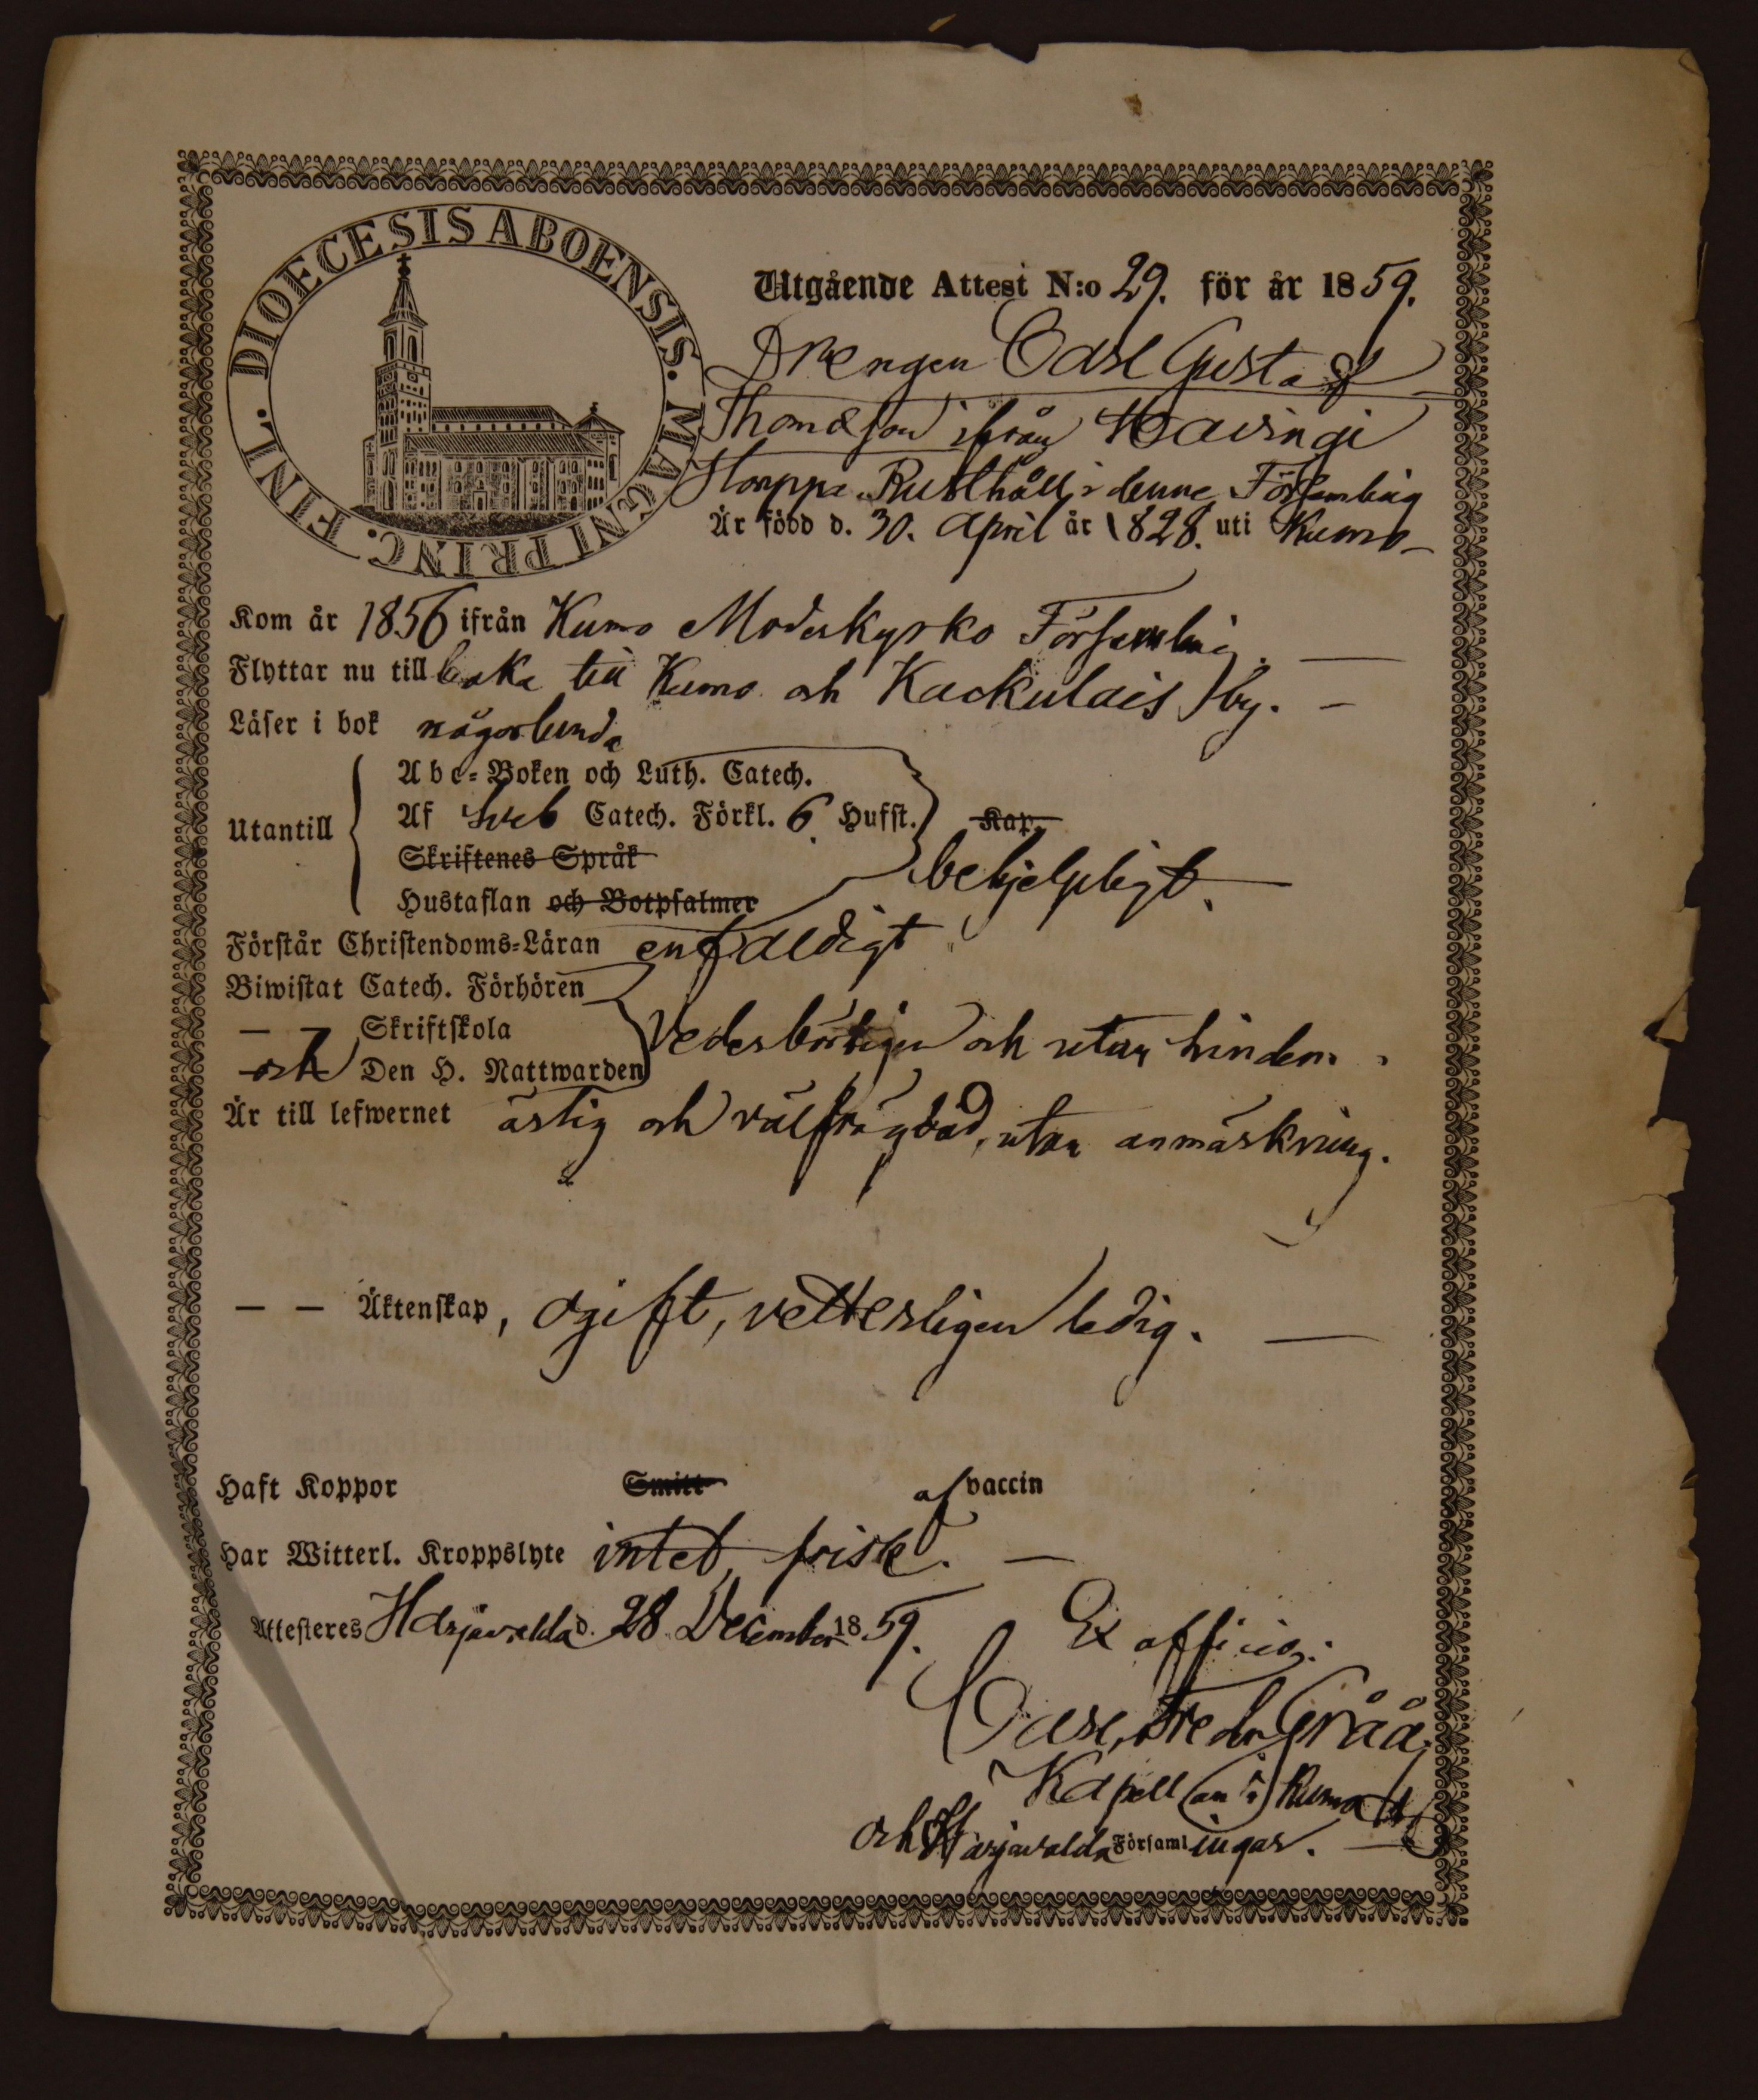 DIOECESIS ABOENSIS. MAGNI PRINC. FINL.
Utgående Attest N:o 29. för år 1859.
Drengen Carl Gustaf
Thomasson ifrån Havingi
Storppa Rusthåll i denne Församling
Är född d. 30. April år 1828. uti Kumo
Kom år 1856 ifrån Kumo Moderkyrko Församling.
Flyttar nu till baka till Kumo och Kackulais by.
Läser i bok någorlunda
Utantill
Abc-Boken och Luth. Catech.
Af Sveb Catech. Förkl. 6 Hufst. Kap.
Skriftenes Språk
Hustaflan och Botpsalmer
behjelpligt.
Förstår Christendoms-Läran enfaldigt
Biwistat Catech. Förhören
— — Skriftskola
och Den H. Nattwarden
Vederbörligen och utan hinder.
Är till lefwernet ärlig och välfrägdad, utan anmärkning.
— — Äktenskap, ogift, vetterligen ledig.
Haft Koppor Smitt af vaccin
Har Witterl. Kroppslyte intet, frisk.
Attesteres Harjavalda d. 28 December 1859.
Ex officio:
Carl Fredr Gråå,
Kapellan i Kumo
och Harjavalda Församlingar.